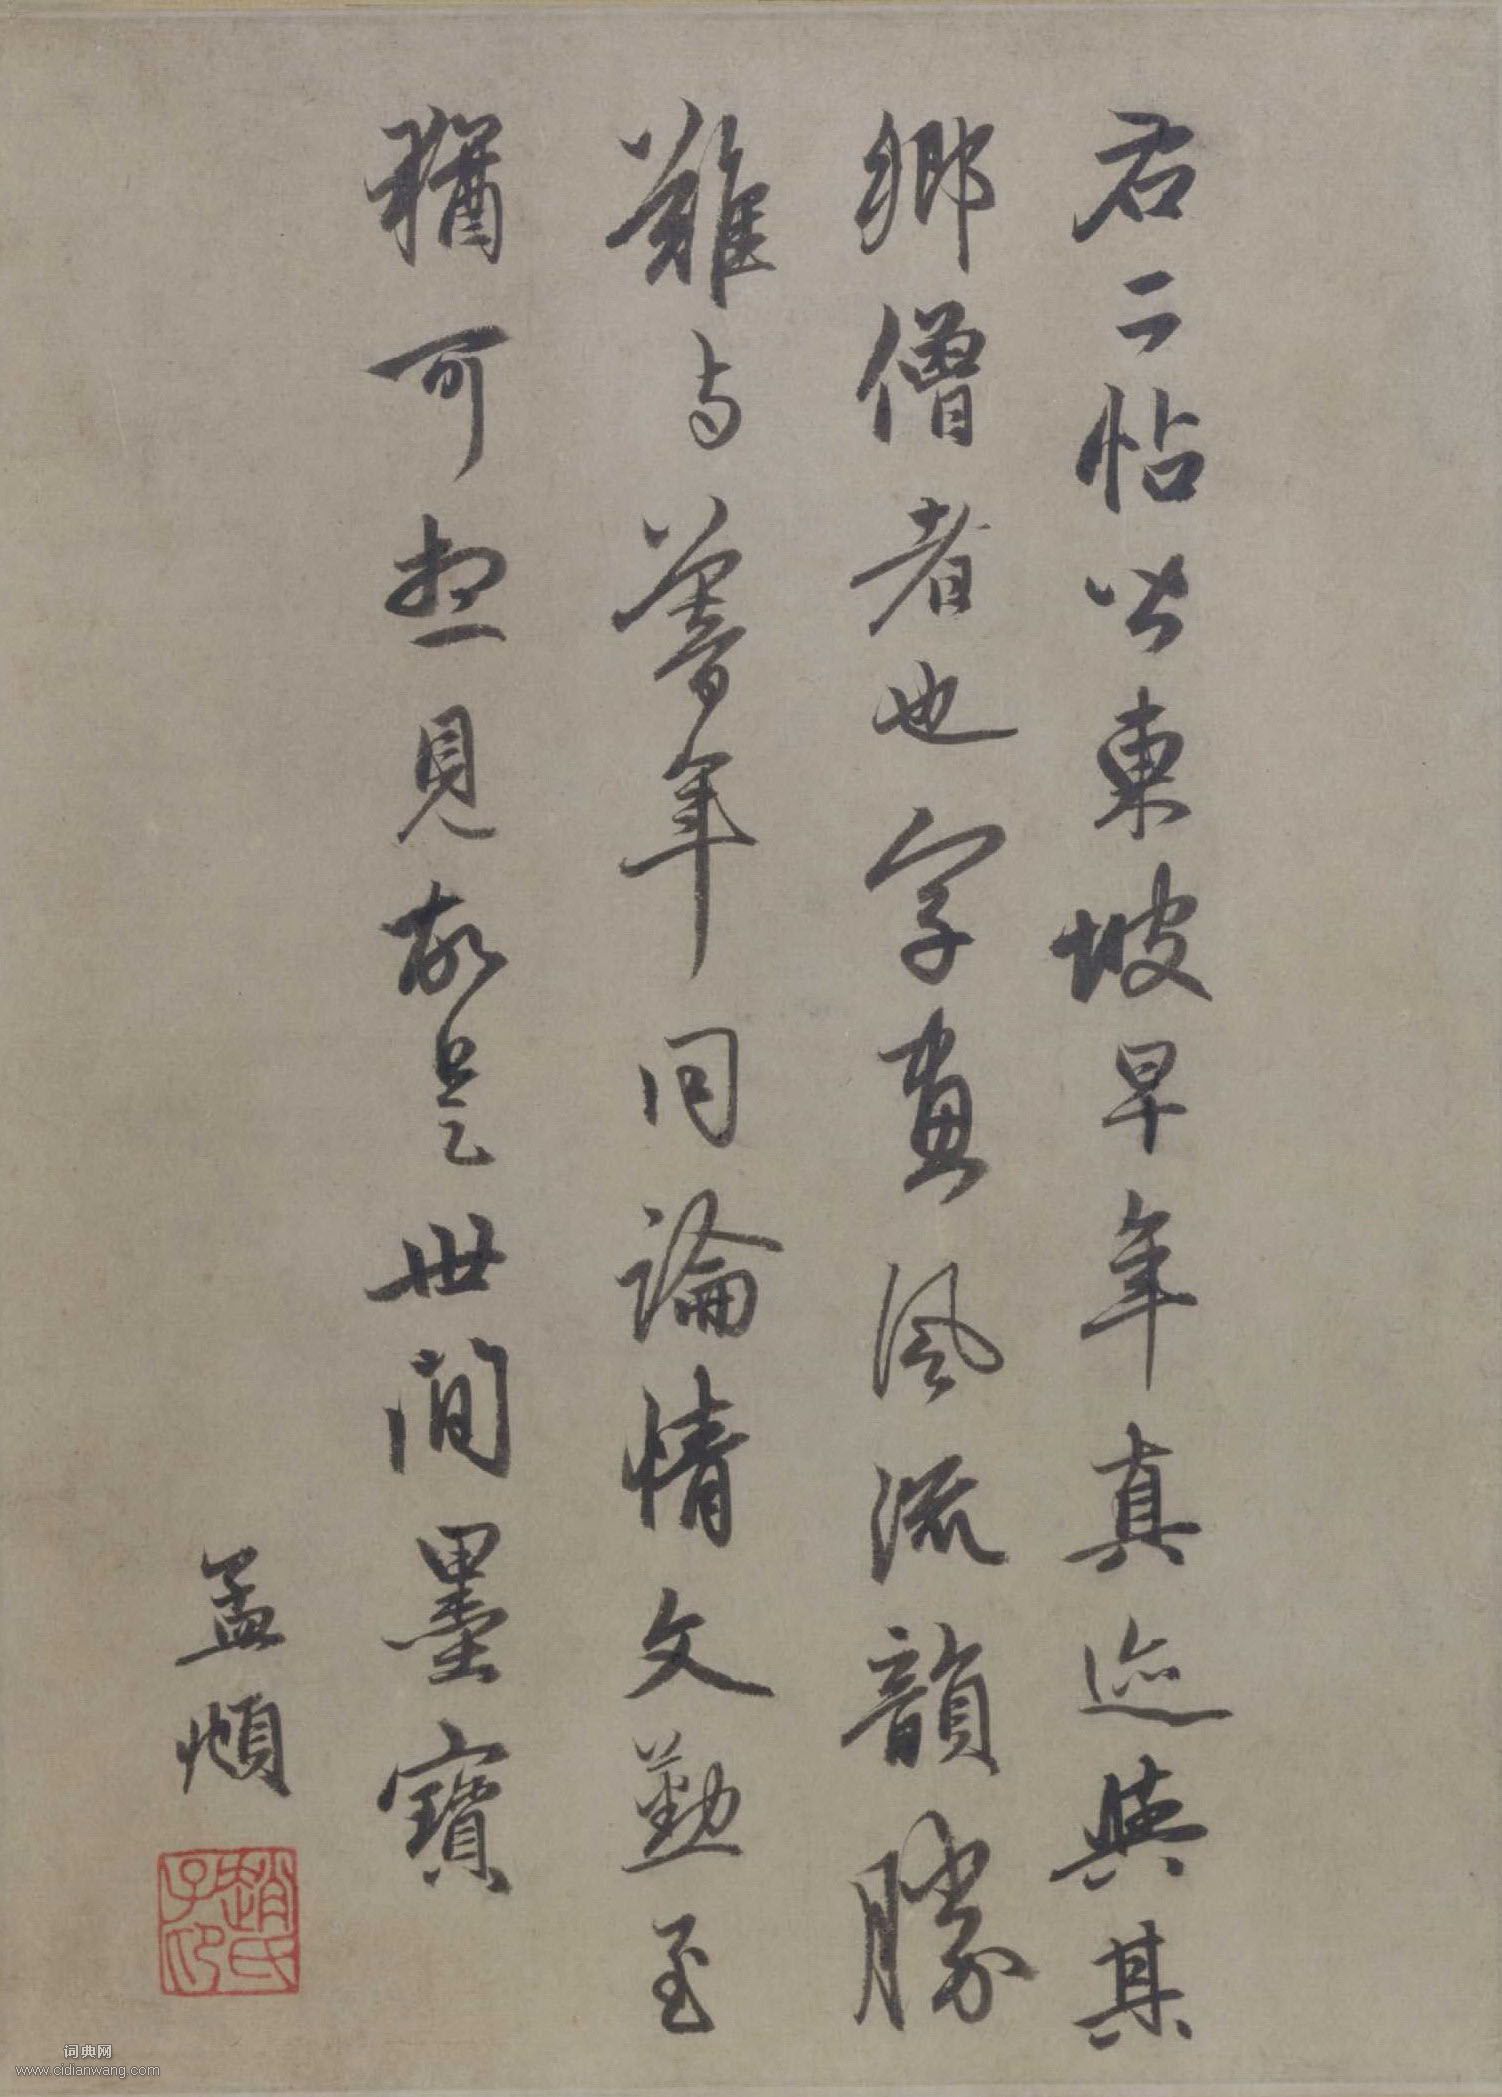 右二帖皆東坡早年真迹與其
鄉僧者也字畫風流韻勝
難与暮年同論情文勤至
猶可想見故是世間墨寶
孟頫
趙氏子印
词典网
www.cidianwang.com